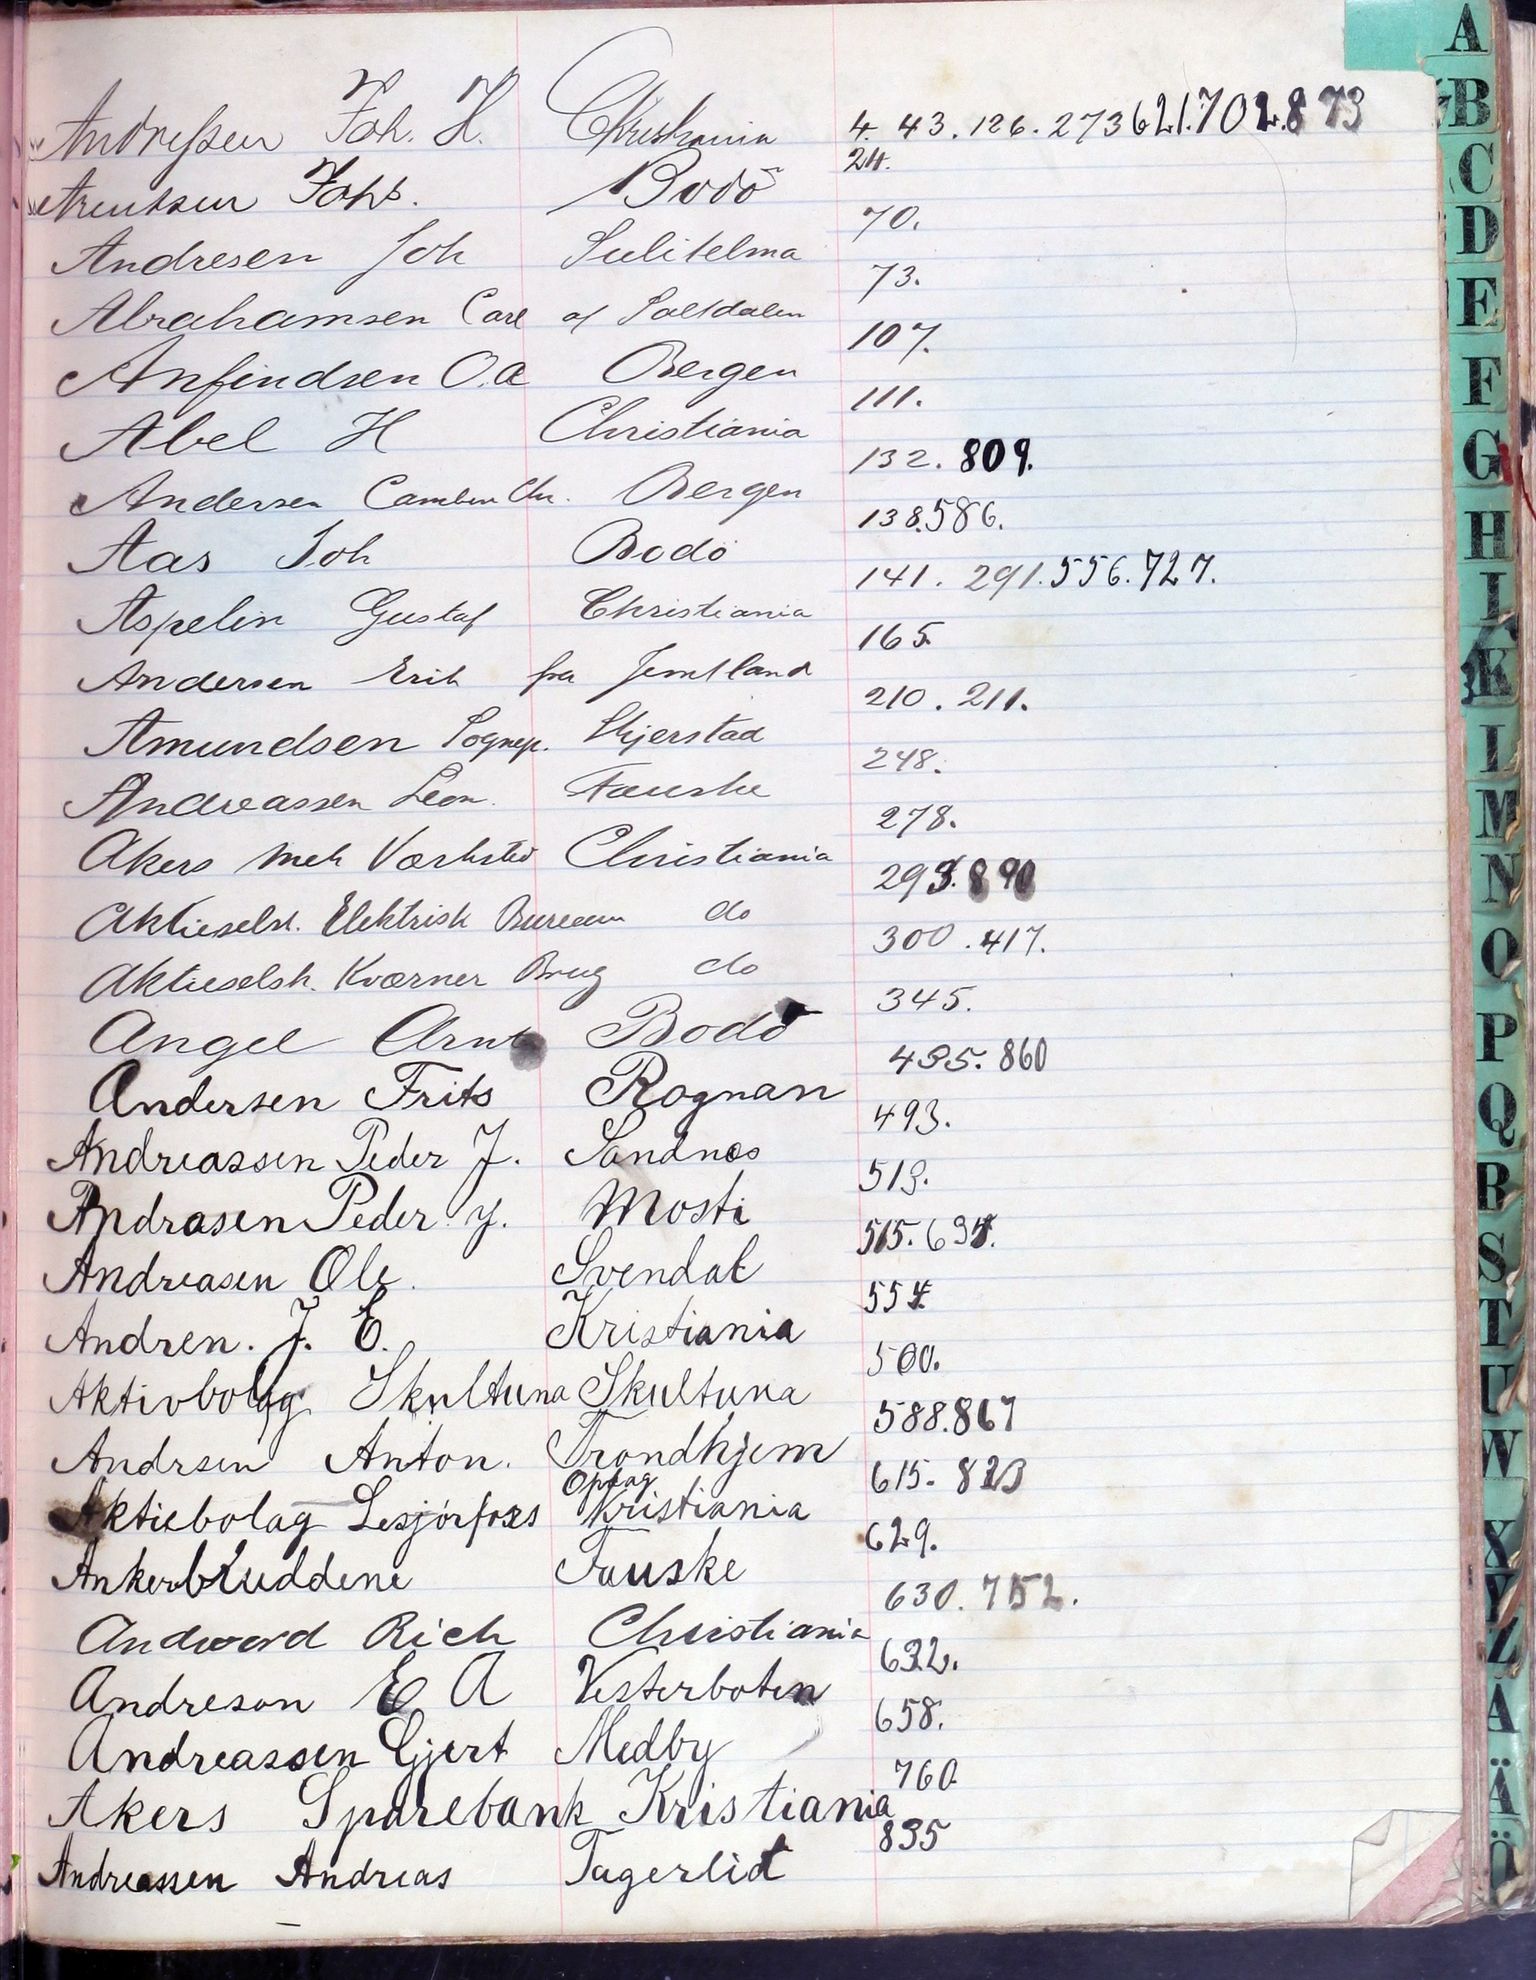 Andreßen Joh. H. Christiania 4. 43. 126. 273 621. 702. 873
Arentsen Johs. Bodö 24.
Andresen Joh Sulitelma 70.
Abrahamsen Carl af Saltdalen 73.
Anfindsen O. A Bergen 107.
Abel H Christiania 111.
Andersen Chr. Bergen 132. 809.
Aas Joh Bodö 138. 586.
Aspelin Gustaf Christiania 141. 291. 556. 727.
Andersen Erik fra Jemtland 165.
Amundsen Sognep. Skjerstad 210. 211.
Andreassen Leon. Fauske 248.
Akers Mek Værksted Christiania 278.
Aktieselsk. Elektrisk Bureau do 293. 890
Aktieselsk. Kværner Brug do 300. 417.
Angel Arnt Bodö 345.
Andersen Frits Rognan 435. 860
Andreassen Peder J. Sandnes 493.
Andrasen Peder J. Mosti 513.
Andreasen Ole. Svendal 515. 634.
Andren. J. E. Kristiania 554
Aktivbolag Skultuna Skultuna 500.
Andrsen Anton. Trondhjem 588. 867
Aktiebolag Lesjörfors Oplag Kristiania 615. 823
Ankerbruddene Fauske 629.
Andword Rich Christiania 630. 752.
Andreson E A Vesterboten 632.
Andreassen Gjert Medby 658.
Akers Sparebank Kristiania 760.
Andreassen Andreas Tagerlid 835
A
B
C
D
E
F
G
H
I
K
L
M
N
O
P
Q
R
S
T
U
W
X
Y
Z
Å
Ä
Ö